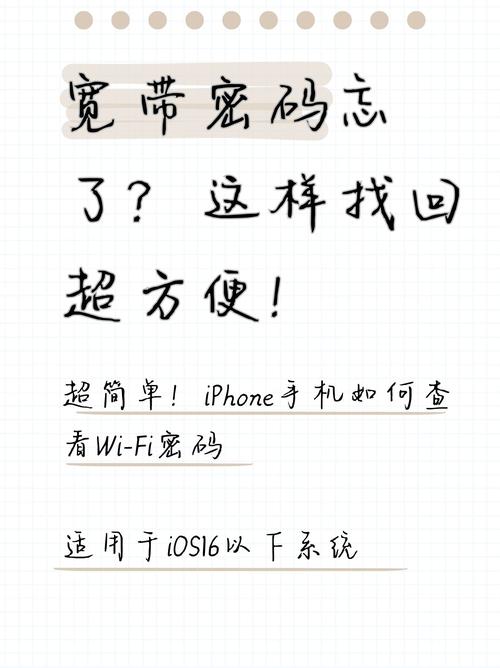 宽带密码忘
了？这样找回
超方便！
超简单！iPhone手机如何查
看Wi-Fi密码
适用于iOS16以下系统